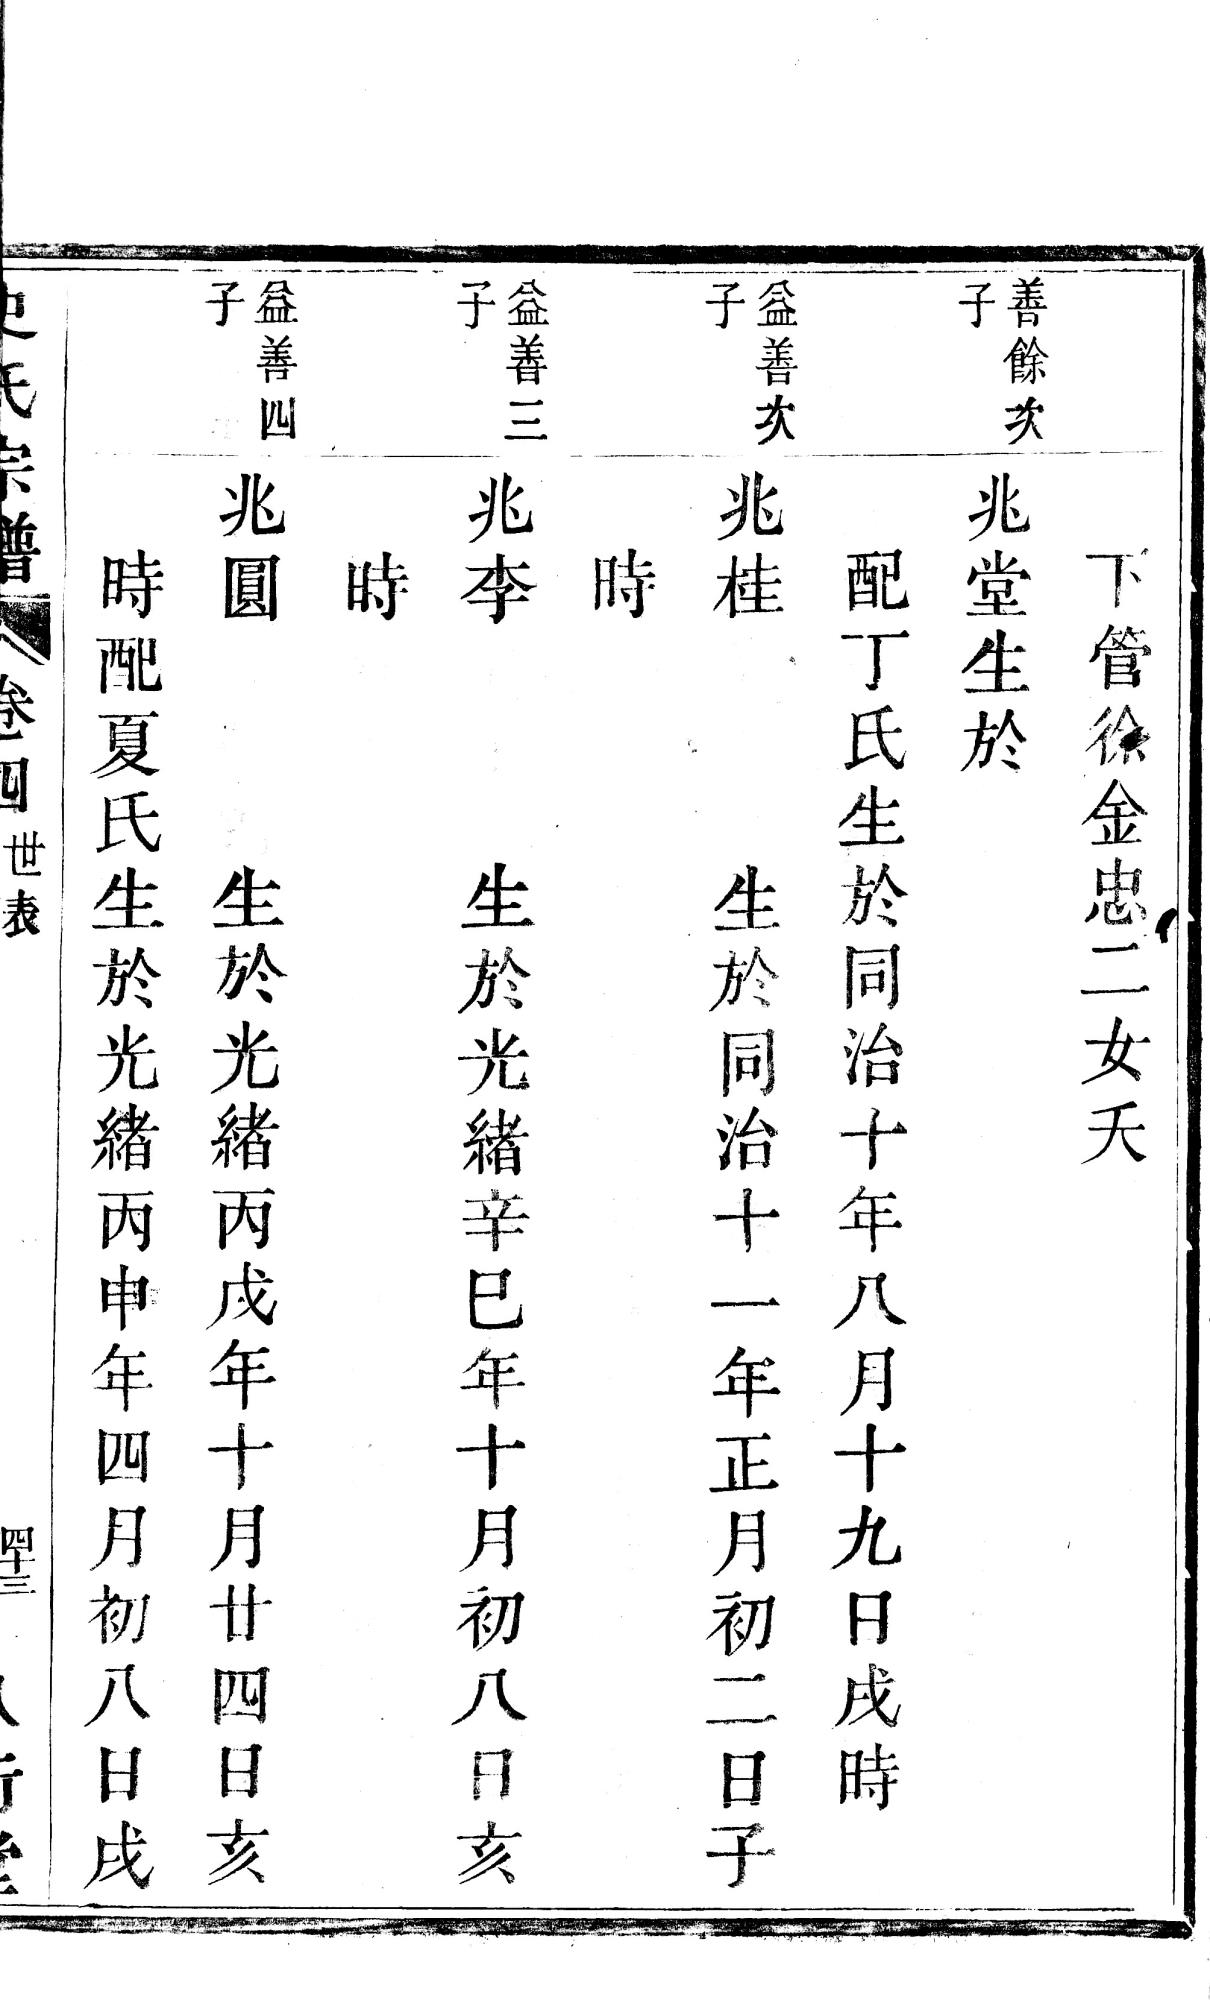 下管徐金忠二女夭
善餘次
子
兆堂生於
配丁氏生於同治十年八月十九日戌時
益善次
子
兆桂　生於同治十一年正月初二日子
時
益善三
子
兆李　生於光緒辛巳年十月初八日亥
時
益善四
子
兆圓　生於光緒丙戌年十月廿四日亥
時配夏氏生於光緒丙申年四月初八日戌
史氏宗譜　卷四　世表　四十三　八行堂